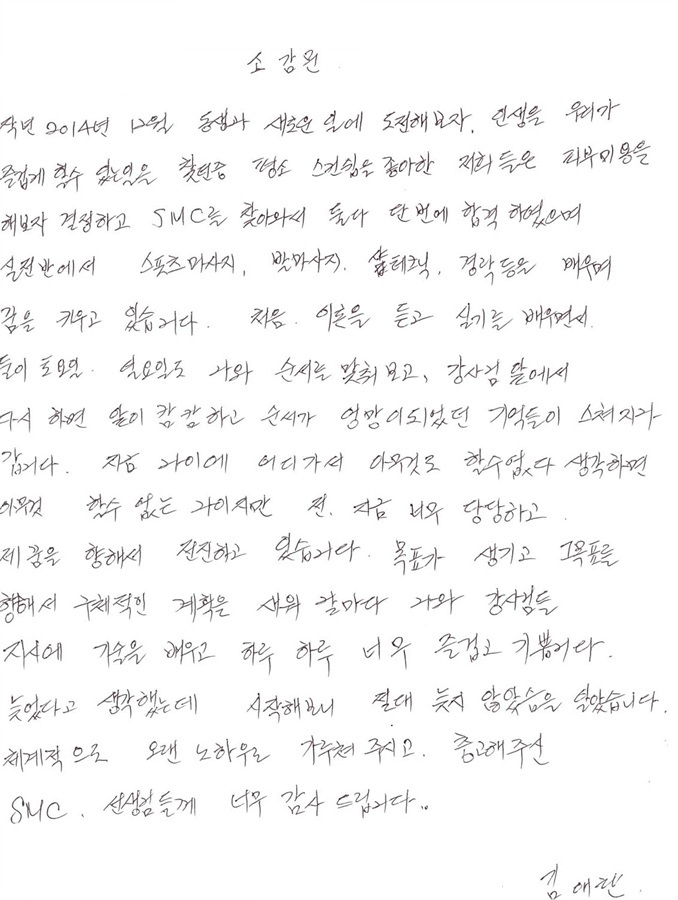 소감문
작년 2014년 12월 동생과 새로운 일에 도전해보자. 인생을 우리가
즐겁게 할수 있는일을 찾던중 평소 스킨쉽을 좋아한 저희들은 피부미용을
해보자 결정하고 SMC를 찾아와서 둘다 단번에 합격하였으며
실전반에서 스포츠마사지, 발마사지. 샵테크닉, 경락등을 배우며
꿈을 키우고 있습니다. 처음. 이론을 듣고 실기를 배우면서.
둘이 토요일. 일요일도 나와 순서를 맞춰보고, 강사님 앞에서
다시 하면 앞이 캄캄하고 순서가 엉망이되었던 기억들이 스쳐지나
갑니다. 지금 나이에 어디가서 아무것도 할수없다 생각하면
아무것 할수 없는 나이지만 전. 지금 너무 당당하고.
제 꿈을 향해서 전진하고 있습니다. 목표가 생기고 그목표를
향해서 구체적인 계획을 세워 날마다 나와 강사님들
지시에 기술을 배우고 하루 하루 너무 즐겁고 기쁩니다.
늦었다고 생각했는데 시작해보니 절대 늦지 않았슴을 알았습니다.
체계적으로 오랜 노하우로 가루쳐 주시고. 충고해주신
SMC. 선생님들께 너무 감사드립니다..
김애란.